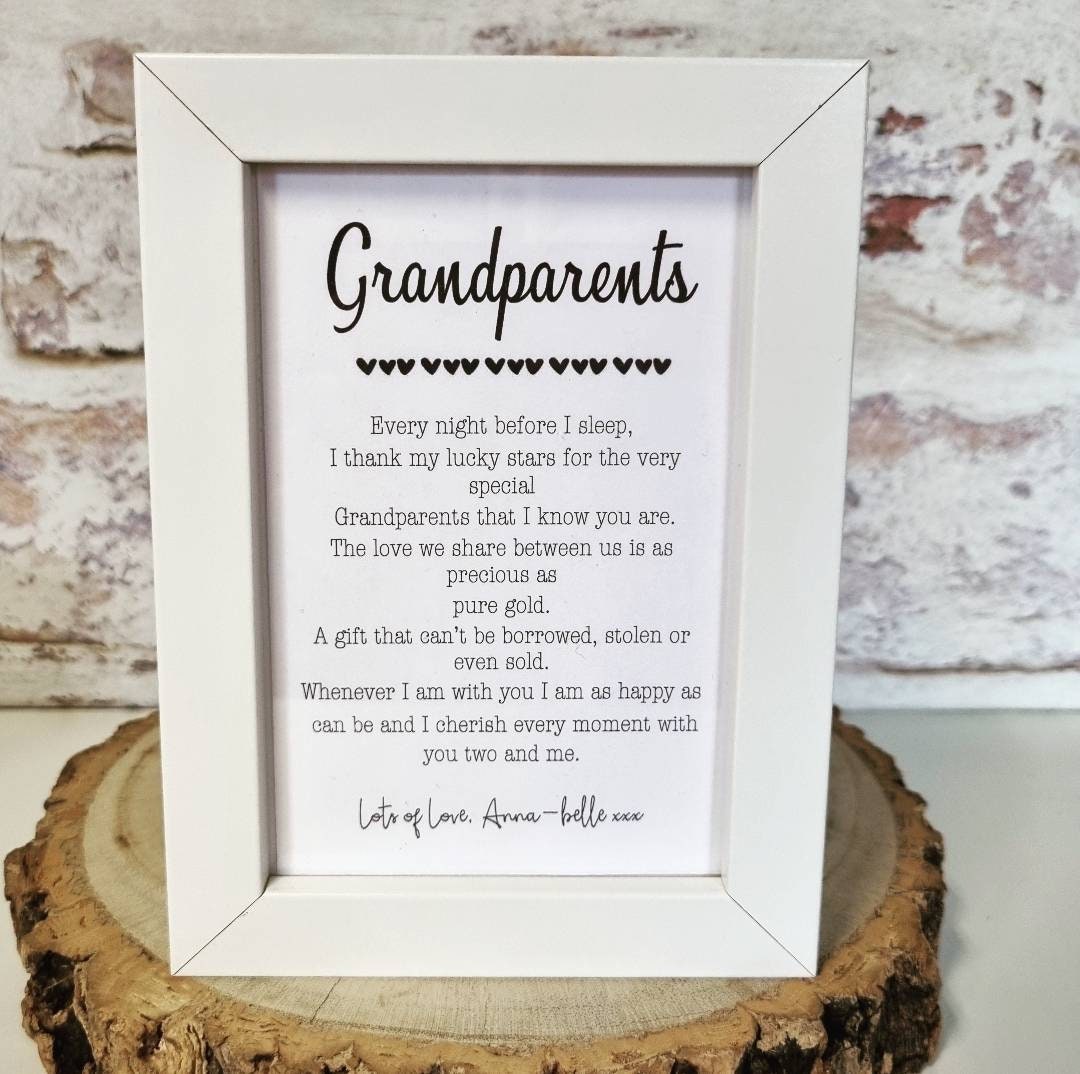 Grandparents
Every night before I sleep,
I thank my lucky stars for the very
special
Grandparents that I know you are.
The love we share between us is as
precious as
pure gold.
A gift that can't be borrowed, stolen or
even sold.
Whenever I am with you I am as happy as
can be and I cherish every moment with
you two and me.
Lots of love, Anna-belle xxx